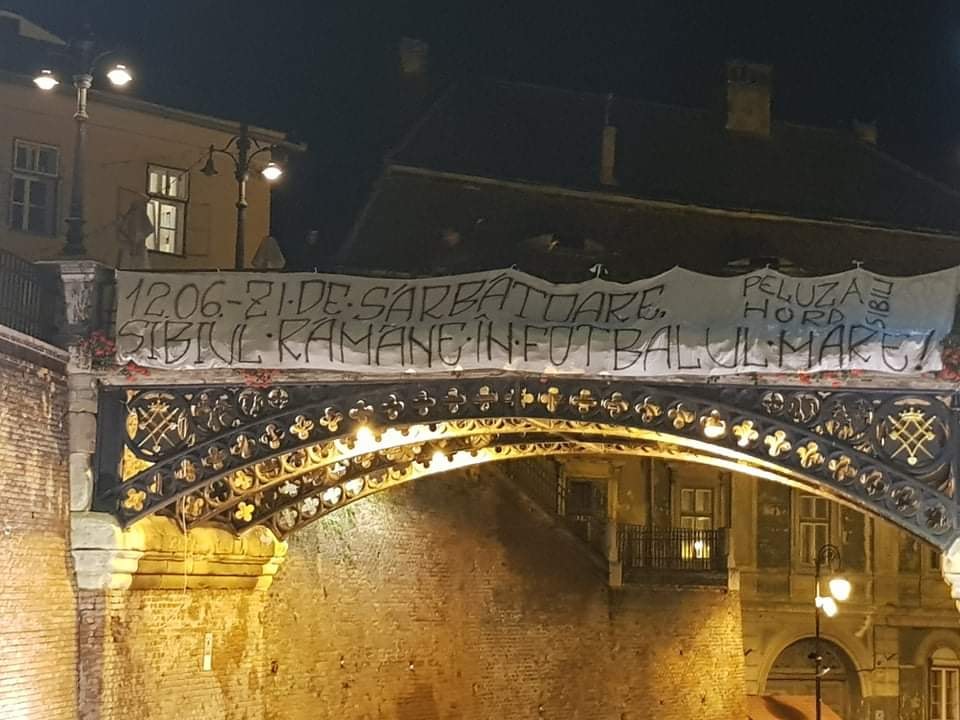 12.06-ZI·DE·SĂRBĂTOARE,
SIBIUL·RĂMÂNE·ÎN·FOTBALUL·MARE!
PELUZA
HORD
SIBIU